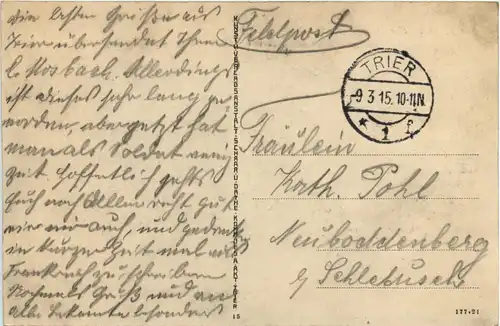 die besten Grüße aus
Trier übersendet Ihnen
C. Mosbach. Allerdings
ist dieses sehr lang ge-
worden, aber jetzt hat
man als Soldat wenig
Zeit. Hoffentlich gehts
Euch noch Allen recht gut
wie mir auch, und gedenke
in kurzer Zeit mal aus
Frankreich zu schreiben
Nochmals Gruß und an
Alle Bekannte besonders
KUNSTVERLAGSANSTALT SCHAAR & DATHE, KOMM.-GES. A. AKT., TRIER
15
Feldpost
TRIER
-9 3 15. 10-11 N.
* 1 f
Fräulein
Kath. Pohl
Neuboddenberg
b/ Schlebusch
177-21